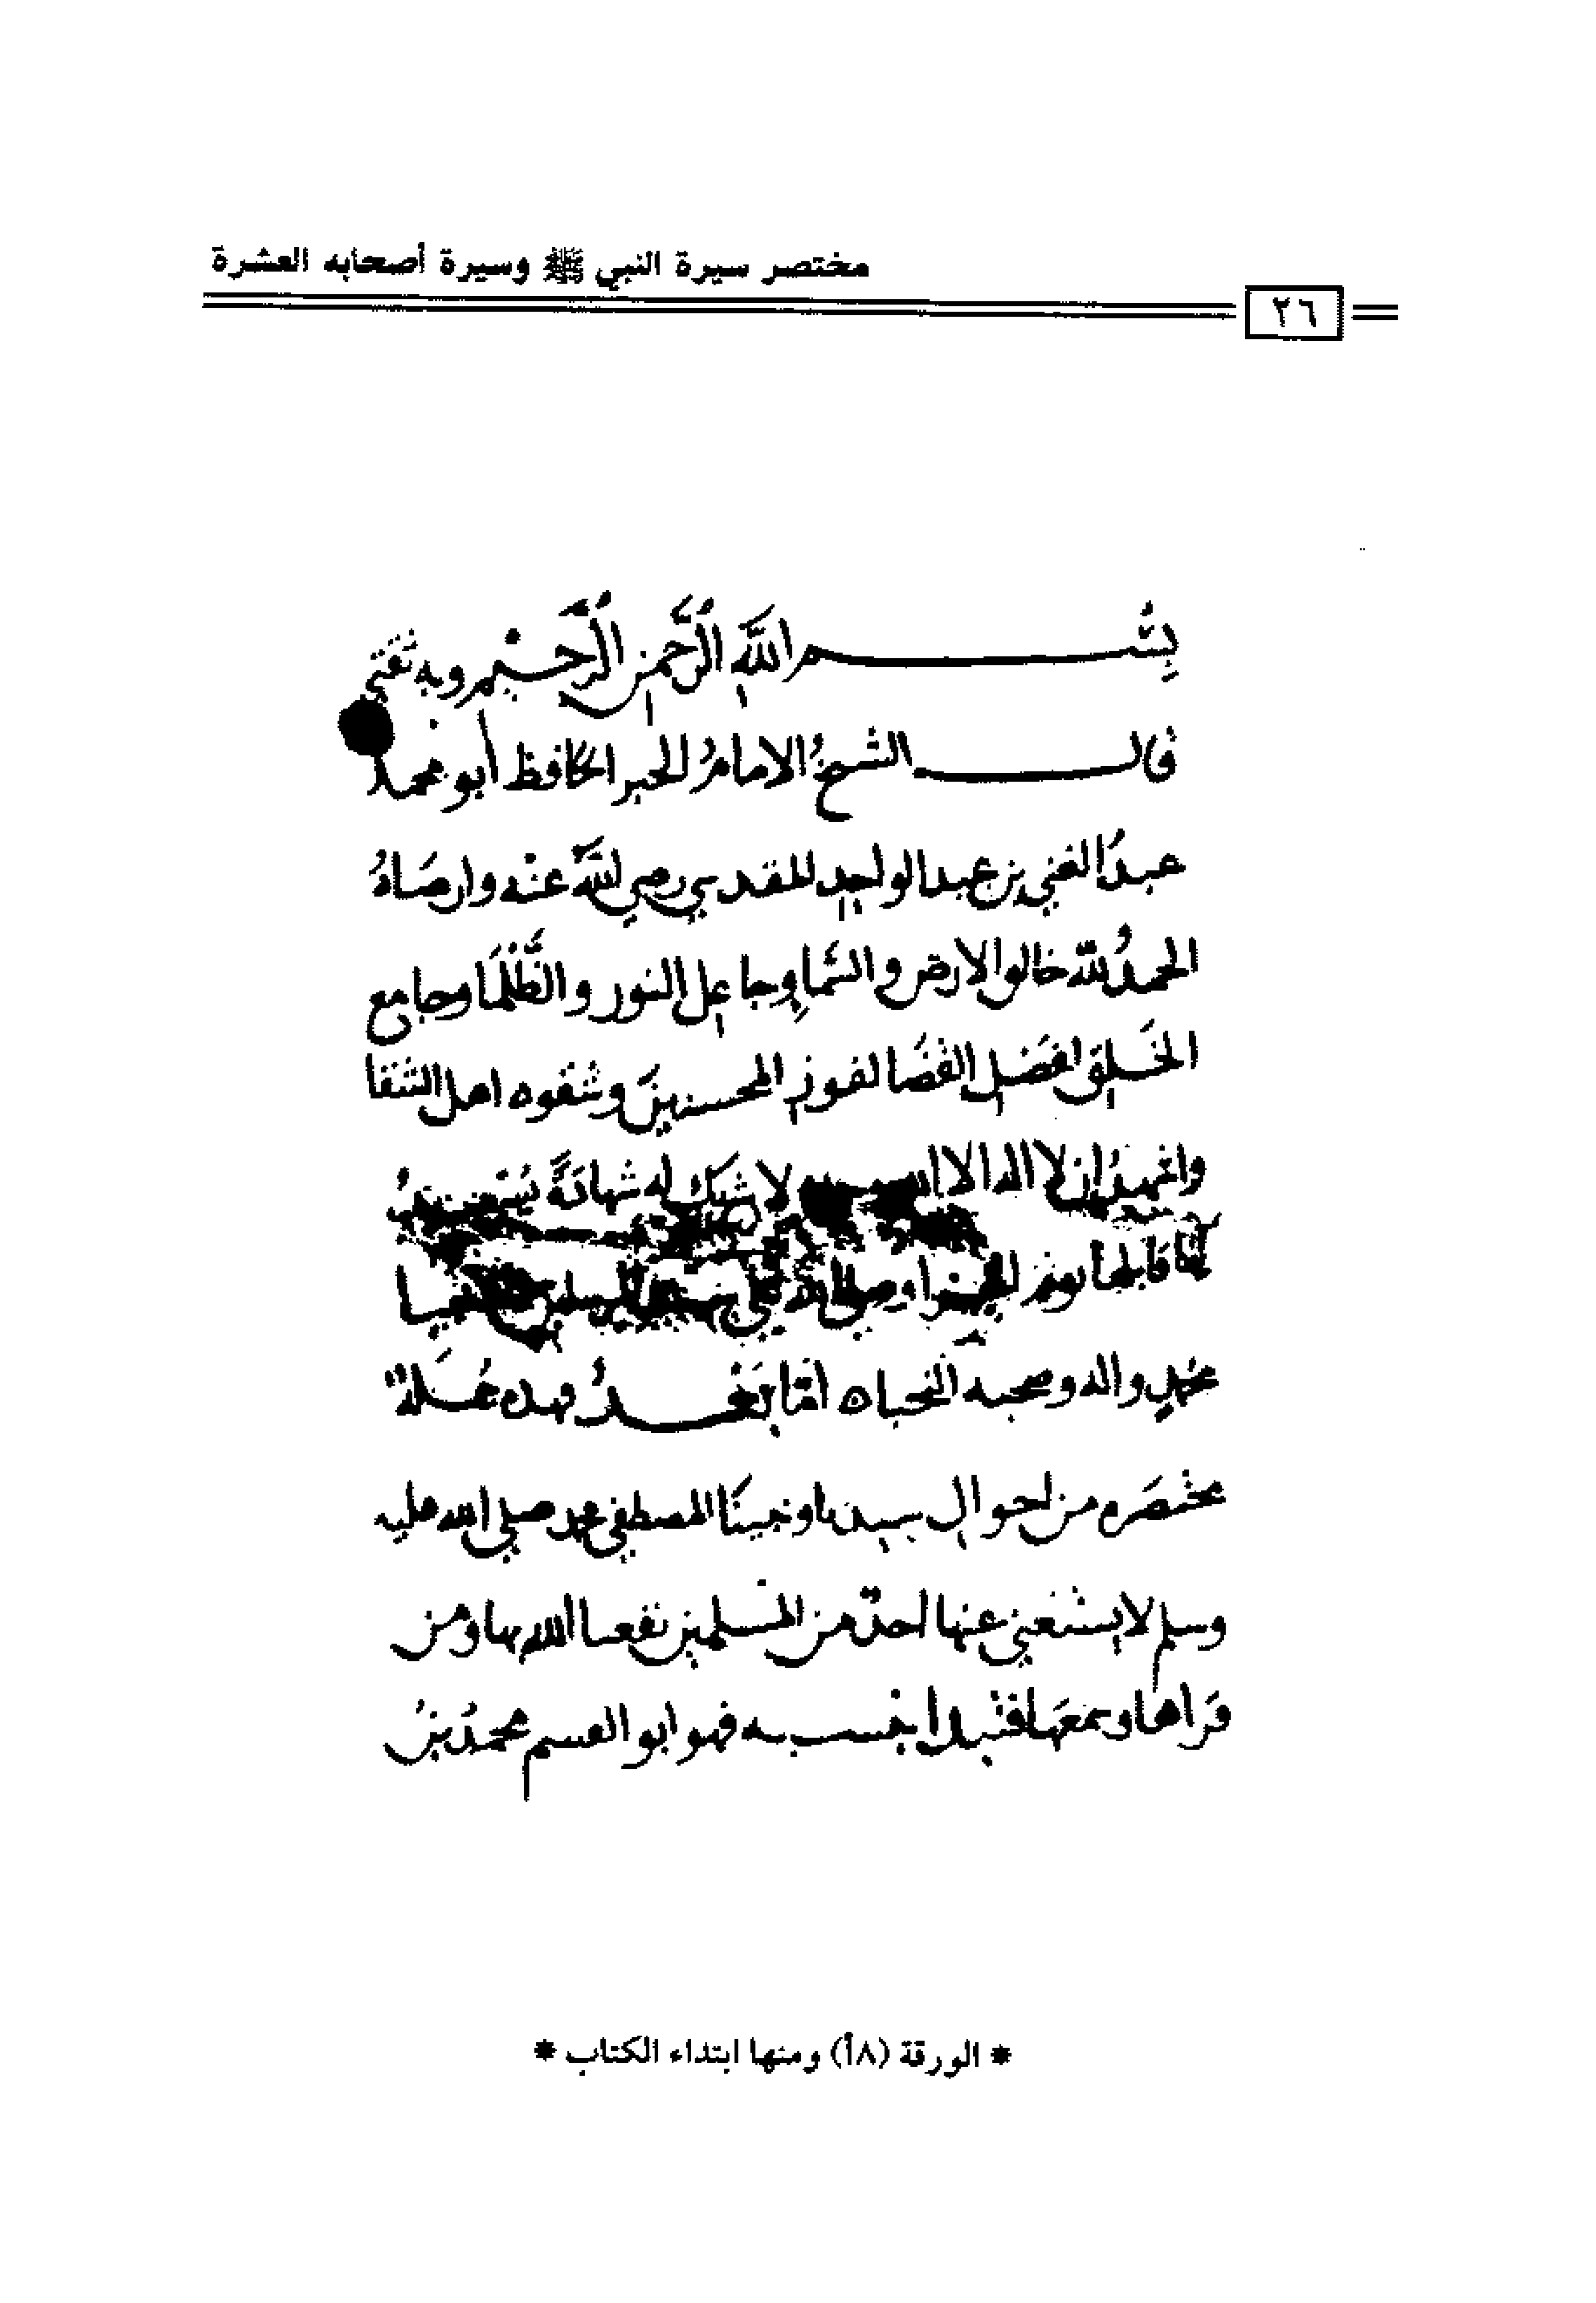 مختصر سيرة النبي ﷺ وسيرة أصحابه العشرة
٢٦
بسم الله الرحمن الرحيم وبه ثقتي
قال الشيخ الامام الحبر الحافظ أبو محمد
عبد الغني بن عبد الواحد المقدسي رضي الله عنه وارضاه
الحمد لله خالق الارض والسما وجاعل النور والظلما وجامع
الخلق لفصل القضا لفوز المحسنين وشقوه اهل الشقا
واشهد ان لا اله الا الله لا شريك له شهادة يسعد بها
قابلها يوم الجزا وصلى الله على سيد المرسلين
محمد واله وصحبه النجبا ه امّا بعد فهذه جملة
مختصره من احوال سيدنا ونبينا المصطفى محمد صلى الله عليه
وسلم لا يستغني عنها احد من المسلمين نفعنا الله بها ومن
قراها وسمعها فنبدا بنسبه فهو ابو القسم محمد بن
* الورقة (٨أ) ومنها ابتداء الكتاب *